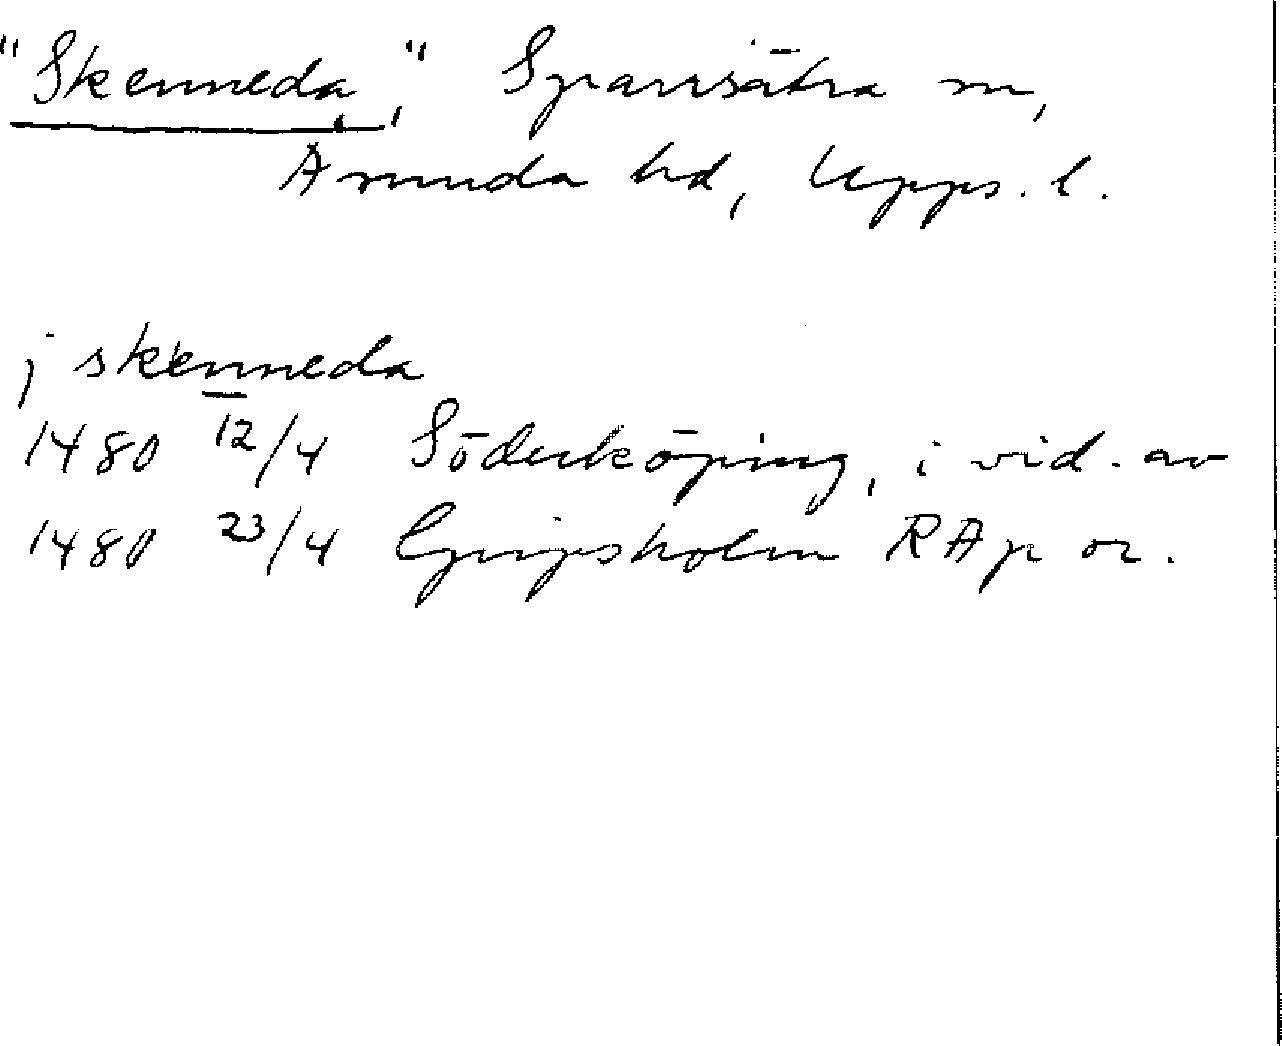 "Skenneda", Sparrsätra sn,
Åsunda hd, Upps. l.
j skenneda
1480 12/4 Söderköping, i vid. av
1480 23/4 Gripsholm RAp or.